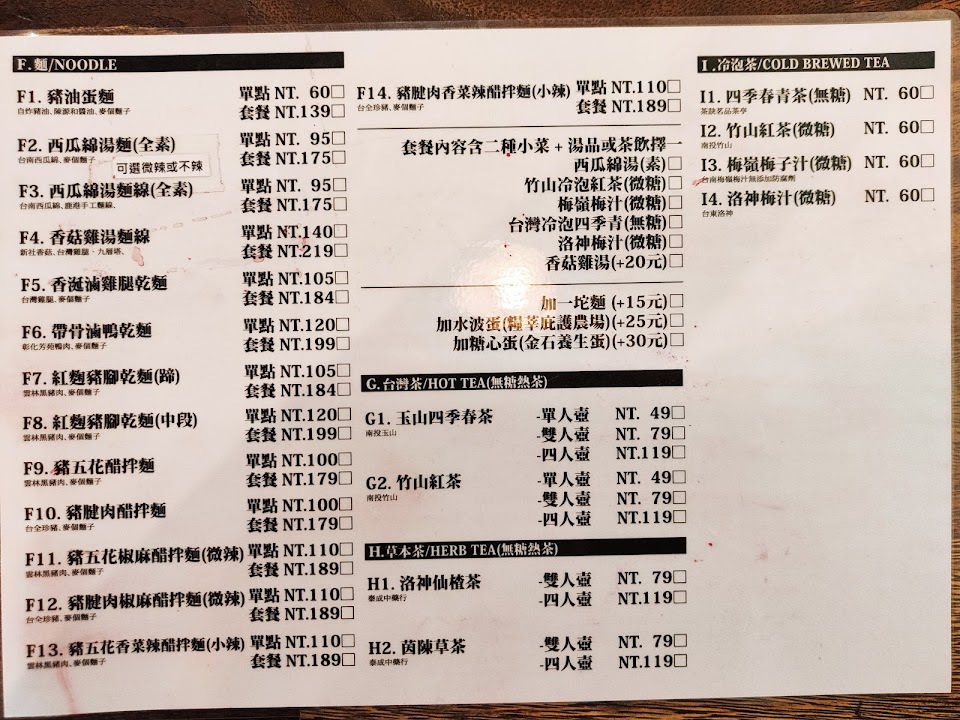 F.麵/NOODLE
F1. 豬油蛋麵 單點 NT. 60□
自炸豬油、陳源和醬油、麥個麵子 套餐 NT.139□
F2. 西瓜綿湯麵(全素) 單點 NT. 95□
台南西瓜綿、麥個麵子 套餐 NT.175□
可選微辣或不辣
F3. 西瓜綿湯麵線(全素) 單點 NT. 95□
台南西瓜綿、鹿港手工麵線、 套餐 NT.175□
F4. 香菇雞湯麵線 單點 NT.140□
新社香菇、台灣雞腿、九層塔、 套餐 NT.219□
F5. 香涎滷雞腿乾麵 單點 NT.105□
台灣雞腿、麥個麵子 套餐 NT.184□
F6. 帶骨滷鴨乾麵 單點 NT.120□
彰化芳苑鴨肉、麥個麵子 套餐 NT.199□
F7. 紅麴豬腳乾麵(蹄) 單點 NT.105□
雲林黑豬肉、麥個麵子 套餐 NT.184□
F8. 紅麴豬腳乾麵(中段) 單點 NT.120□
雲林黑豬肉、麥個麵子 套餐 NT.199□
F9. 豬五花醋拌麵 單點 NT.100□
雲林黑豬肉、麥個麵子 套餐 NT.179□
F10. 豬腱肉醋拌麵 單點 NT.100□
台全珍豬、麥個麵子 套餐 NT.179□
F11. 豬五花椒麻醋拌麵(微辣) 單點 NT.110□
雲林黑豬肉、麥個麵子 套餐 NT.189□
F12. 豬腱肉椒麻醋拌麵(微辣) 單點 NT.110□
台全珍豬、麥個麵子 套餐 NT.189□
F13. 豬五花香菜辣醋拌麵(小辣) 單點 NT.110□
雲林黑豬肉、麥個麵子 套餐 NT.189□
F14. 豬腱肉香菜辣醋拌麵(小辣) 單點 NT.110□
台全珍豬、麥個麵子 套餐 NT.189□
套餐內容含二種小菜 + 湯品或茶飲擇一
西瓜綿湯(素)□
竹山冷泡紅茶(微糖)□
梅嶺梅汁(微糖)□
台灣冷泡四季青(無糖)□
洛神梅汁(微糖)□
香菇雞湯(+20元)□
加一坨麵 (+15元)□
加水波蛋(糧莘庇護農場)(+25元)□
加糖心蛋(金石養生蛋)(+30元)□
G.台灣茶/HOT TEA(無糖熱茶)
G1. 玉山四季春茶 -單人壺 NT. 49□
南投玉山 -雙人壺 NT. 79□
-四人壺 NT.119□
G2. 竹山紅茶 -單人壺 NT. 49□
南投竹山 -雙人壺 NT. 79□
-四人壺 NT.119□
H.草本茶/HERB TEA(無糖熱茶)
H1. 洛神仙楂茶 -雙人壺 NT. 79□
泰成中藥行 -四人壺 NT.119□
H2. 茵陳草茶 -雙人壺 NT. 79□
泰成中藥行 -四人壺 NT.119□
I.冷泡茶/COLD BREWED TEA
I1. 四季春青茶(無糖) NT. 60□
茶訣名品茶亭
I2. 竹山紅茶(微糖) NT. 60□
南投竹山
I3. 梅嶺梅子汁(微糖) NT. 60□
台南梅嶺梅汁無添加防腐劑
I4. 洛神梅汁(微糖) NT. 60□
台東洛神